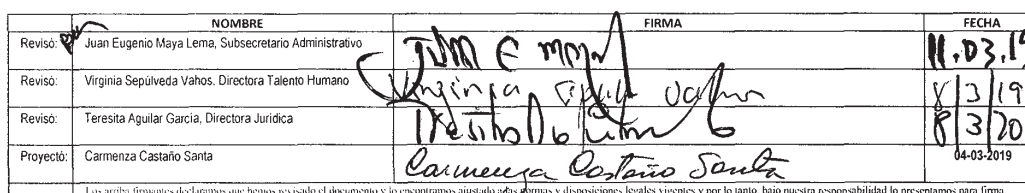 NOMBRE FIRMA FECHA
Revisó: Juan Eugenio Maya Lema, Subsecretario Administrativo Juan E Maya 11.03.19
Revisó: Virginia Sepúlveda Vahos. Directora Talento Humano Virginia Vahos 8/3/19
Revisó: Teresita Aguilar García, Directora Jurídica Teresita 8/3/20
Proyectó: Carmenza Castaño Santa Carmenza Castaño Santa 04-03-2019
Los arriba firmantes declaramos que hemos revisado el documento y lo encontramos ajustado a las normas y disposiciones legales vigentes y por lo tanto, bajo nuestra responsabilidad lo presentamos para firma